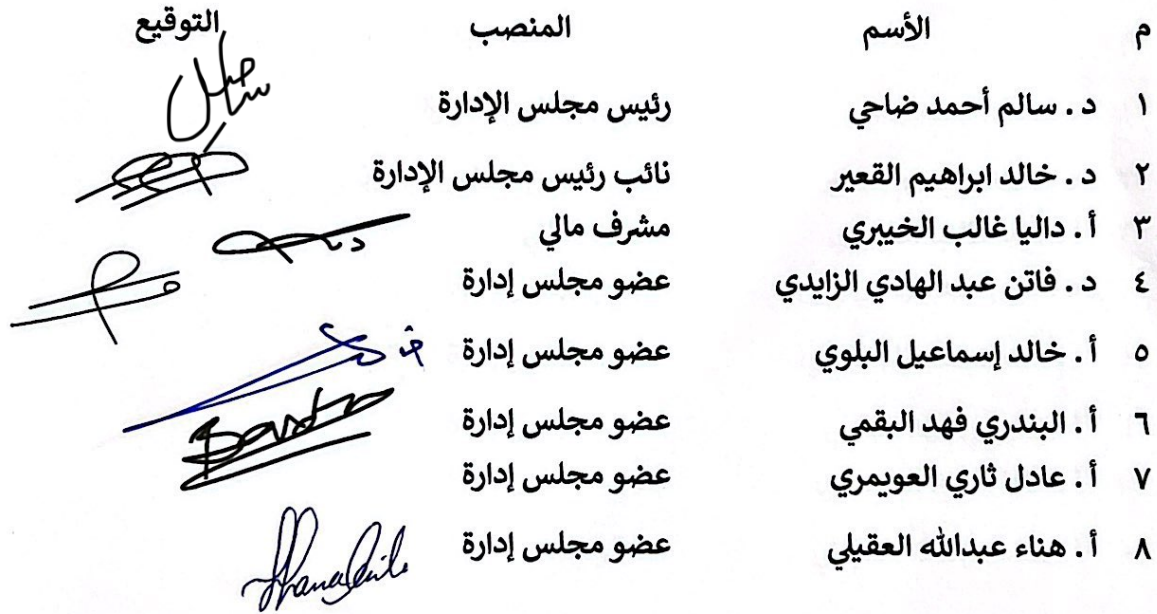 م الأسم المنصب التوقيع
١ د . سالم أحمد ضاحي رئيس مجلس الإدارة
٢ د . خالد ابراهيم القعير نائب رئيس مجلس الإدارة
٣ أ . داليا غالب الخيبري مشرف مالي
٤ د . فاتن عبد الهادي الزايدي عضو مجلس إدارة
٥ أ . خالد إسماعيل البلوي عضو مجلس إدارة
٦ أ . البندري فهد البقمي عضو مجلس إدارة
٧ أ . عادل ثاري العويمري عضو مجلس إدارة
٨ أ . هناء عبدالله العقيلي عضو مجلس إدارة